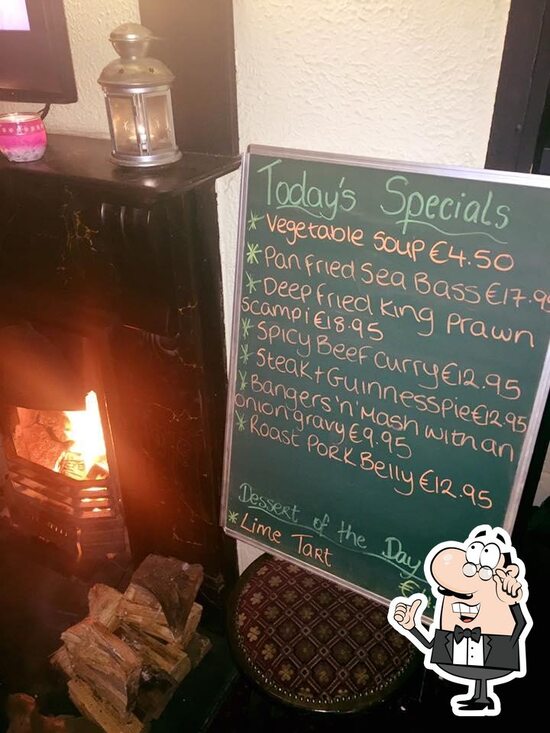 Today's Specials
* Vegetable Soup €4.50
* Pan Fried Sea Bass €17.9
* Deep Fried King Prawn
Scampi €18.95
* Spicy Beef Curry €12.95
* Steak + Guinness Pie €12.95
* Bangers 'n' Mash with an
onion gravy €9.95
* Roast Pork Belly €12.95
Dessert of the Day
* Lime Tart